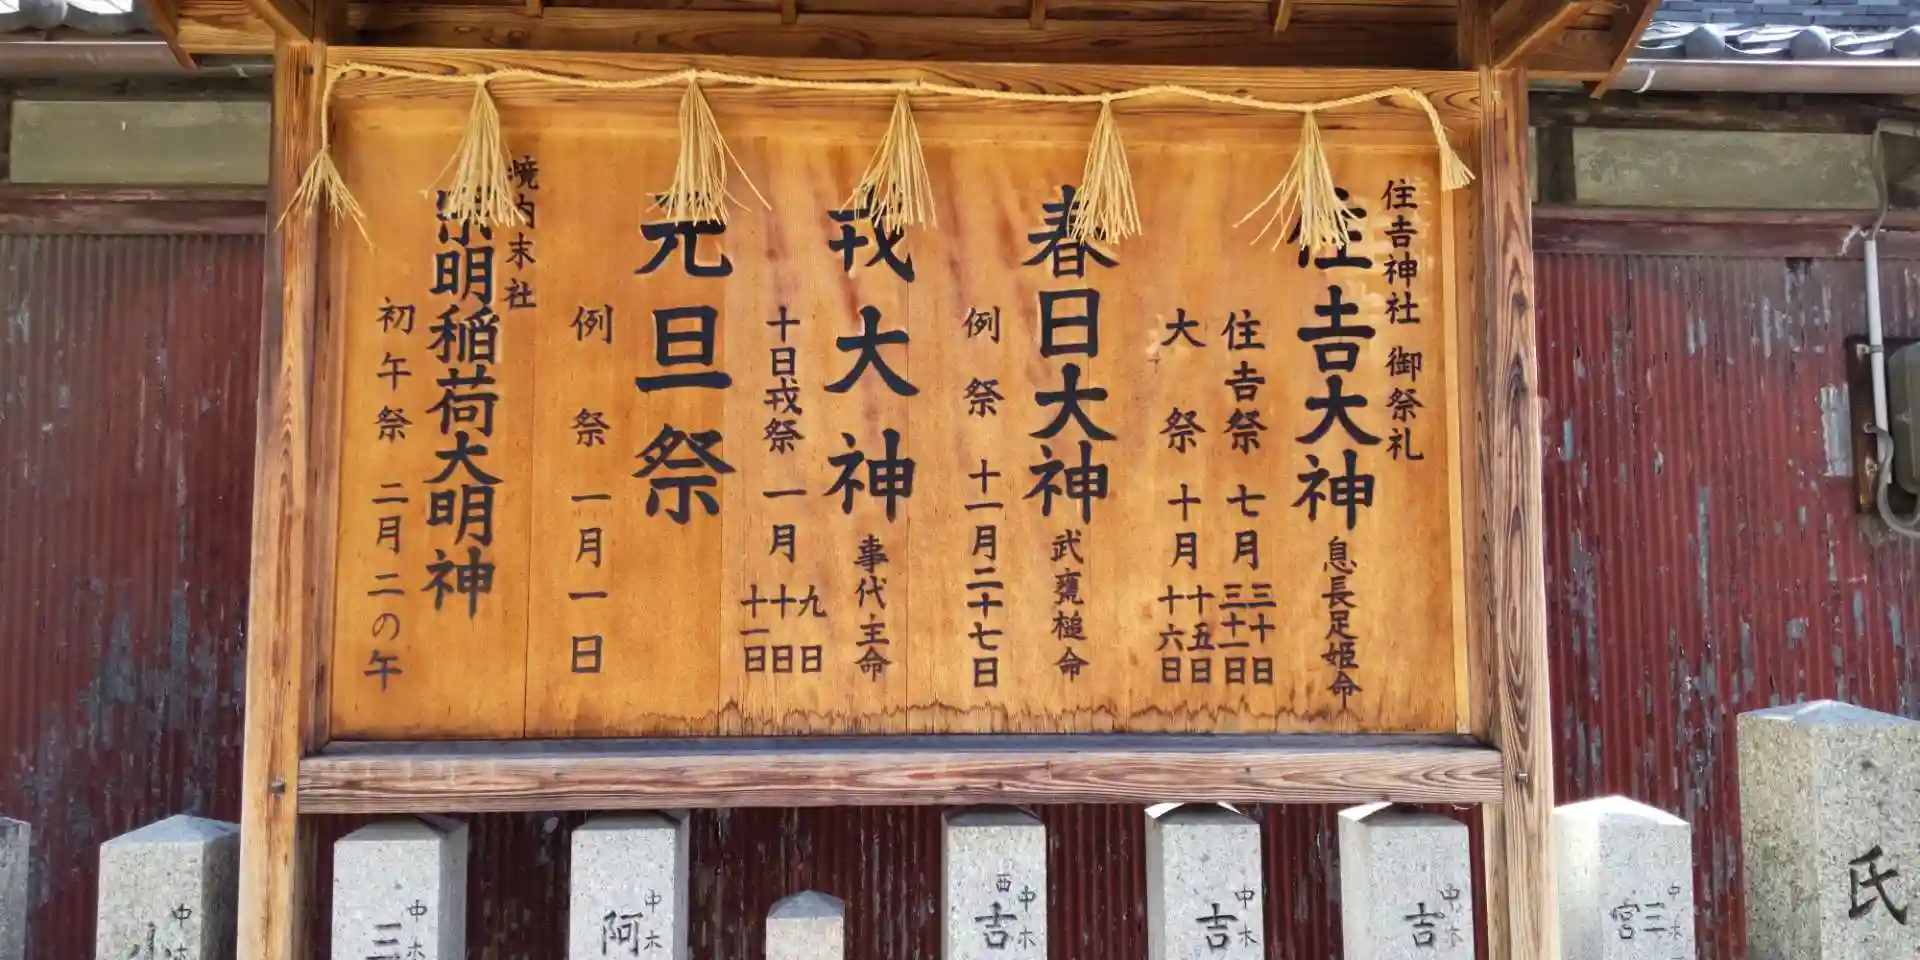 住吉神社 御祭礼
住吉大神 息長足姫命
住吉祭 七月 三十日 三十一日
大祭 十月 十五日 十六日
春日大神 武甕槌命
例祭 十一月二十七日
戎大神 事代主命
十日戎祭 一月 九日 十日 十一日
元旦祭
例祭 一月一日
境内末社
宗明稲荷大明神
初午祭 二月二の午
中木
三
中木
阿
中木
西
吉
中木
吉
中木
吉
三
宮
氏